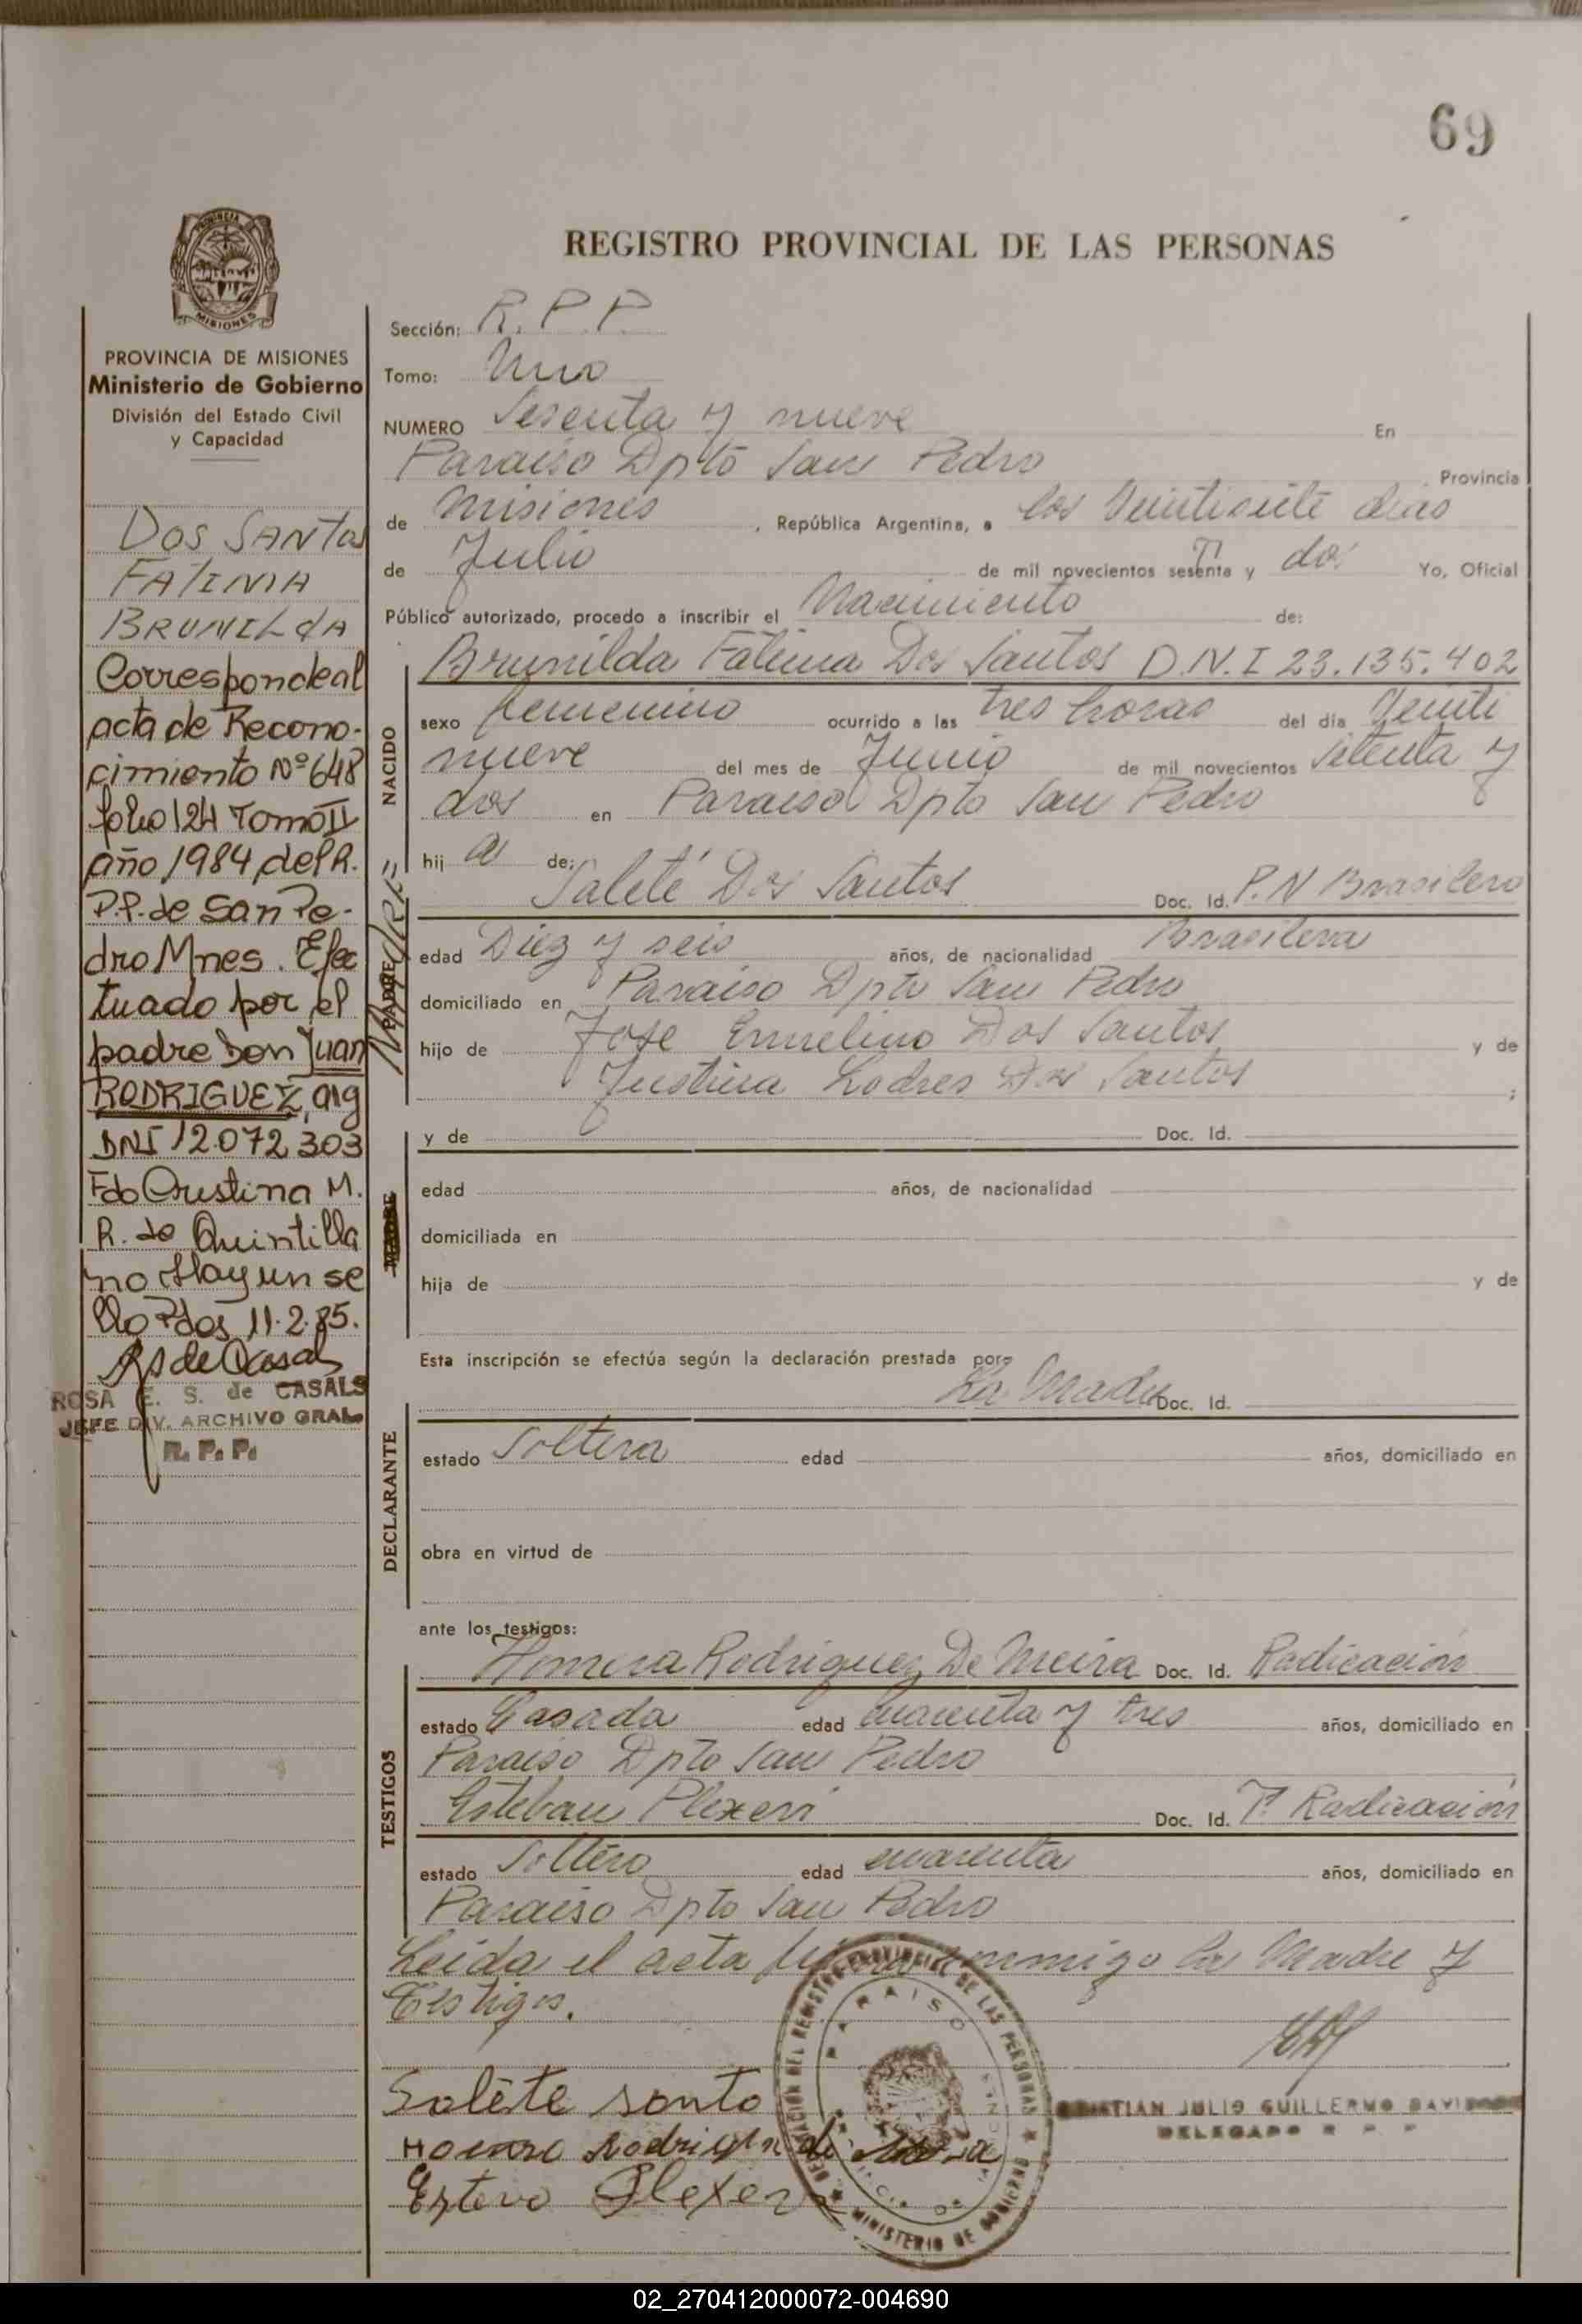 69
REGISTRO PROVINCIAL DE LAS PERSONAS
PROVINCIA DE MISIONES
Ministerio de Gobierno
División del Estado Civil
y Capacidad
DOS SANTOS
FATIMA
BRUNILDA
Corresponde al
acta de Recono-
cimiento Nº 648
folio 124 Tomo II
año 1984 del R.
P.P. de San Pe-
dro Mnes. Efec
tuado por el
padre Don Juan
RODRIGUEZ, arg
DNI 12.072.303
Fdo Cristina M.
R. de Quintilla
no Hay un se
llo Pdas 11.2.85.
RS de Casals
ROSA E. S. de CASALS
JEFE DIV. ARCHIVO GRAL.
R. P. P.
Sección: R.P.P.
Tomo: Uno
NUMERO Sesenta y nueve En
Paraiso Dpto San Pedro Provincia
de Misiones, República Argentina, a los Veintisiete dias
de Julio de mil novecientos setenta y dos Yo, Oficial
Público autorizado, procedo a inscribir el Nacimiento de:
NACIDO
Brunilda Fátima Dos Santos D.N.I 23.135.402
sexo femenino ocurrido a las tres horas del día Veinti
nueve del mes de Junio de mil novecientos setenta y
dos en Paraiso Dpto San Pedro
hij a de:
MADRE
Saleté Dos Santos Doc. Id. P.N Brasilero
edad Diez y seis años, de nacionalidad Brasilera
domiciliado en Paraiso Dpto San Pedro
hijo de Jose Ermelino Dos Santos y de
Justina Lodres Dos Santos ;
y de Doc. Id.
MADRE
edad años, de nacionalidad
domiciliada en
hija de y de
Esta inscripción se efectúa según la declaración prestada por:
La Madre Doc. Id.
DECLARANTE
estado Soltera edad años, domiciliado en
obra en virtud de
ante los testigos:
TESTIGOS
Rodriguez De Meira Doc. Id. Radicación
estado Casada edad cuarenta y tres años, domiciliado en
Paraiso Dpto San Pedro
Esteban Plexen Doc. Id. Radicación
estado Soltero edad cuarenta años, domiciliado en
Paraiso Dpto San Pedro
Leida el acta conmigo la Madre y
testigos.
Saléte santo
Rodrigu de
Estevo Plexen
DELEGACIÓN DEL REGISTRO PROVINCIAL DE LAS PERSONAS
PARAISO
MINISTERIO DE GOBIERNO
CRISTIAN JULIO GUILLERMO
DELEGADO R P P
02_270412000072-004690